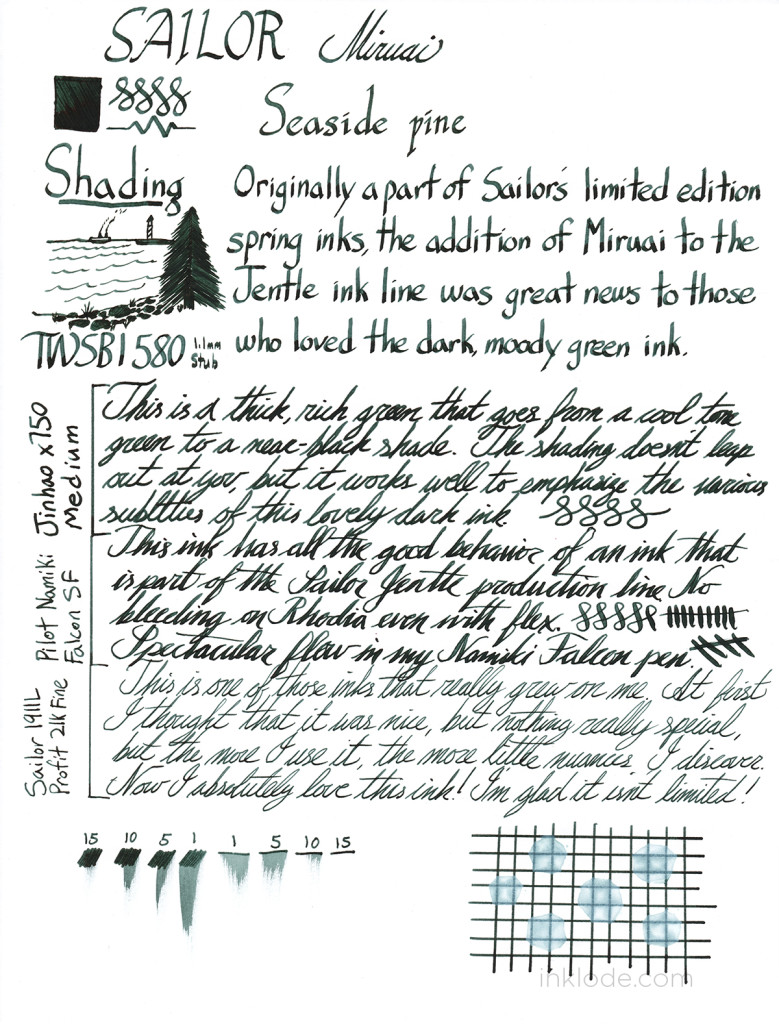 SAILOR Miruai
Seaside pine
Shading
Originally a part of Sailor's limited edition
spring inks, the addition of Miruai to the
Jentle ink line was great news to those
who loved the dark, moody green ink.
TWSBI 580 1.1mm Stub
Jinhao x750
Medium
This is a thick, rich green that goes from a cool tone
green to a near-black shade. The shading doesn't leap
out at you, but it works well to emphasize the various
subltties of this lovely dark ink.
Pilot Namiki
Falcon SF
This ink has all the good behavior of an ink that
is part of the Sailor Jentle production line. No
bleeding on Rhodia even with flex.
Spectacular flow in my Namiki Falcon pen.
Sailor 1911L
Profit 21K Fine
This is one of those inks that really grew on me. At first
I thought that it was nice, but nothing really special,
but the more I use it, the more little nuances I discover.
Now I absolutely love this ink! I'm glad it isn't limited!
15 10 5 1 1 5 10 15
inklode.com